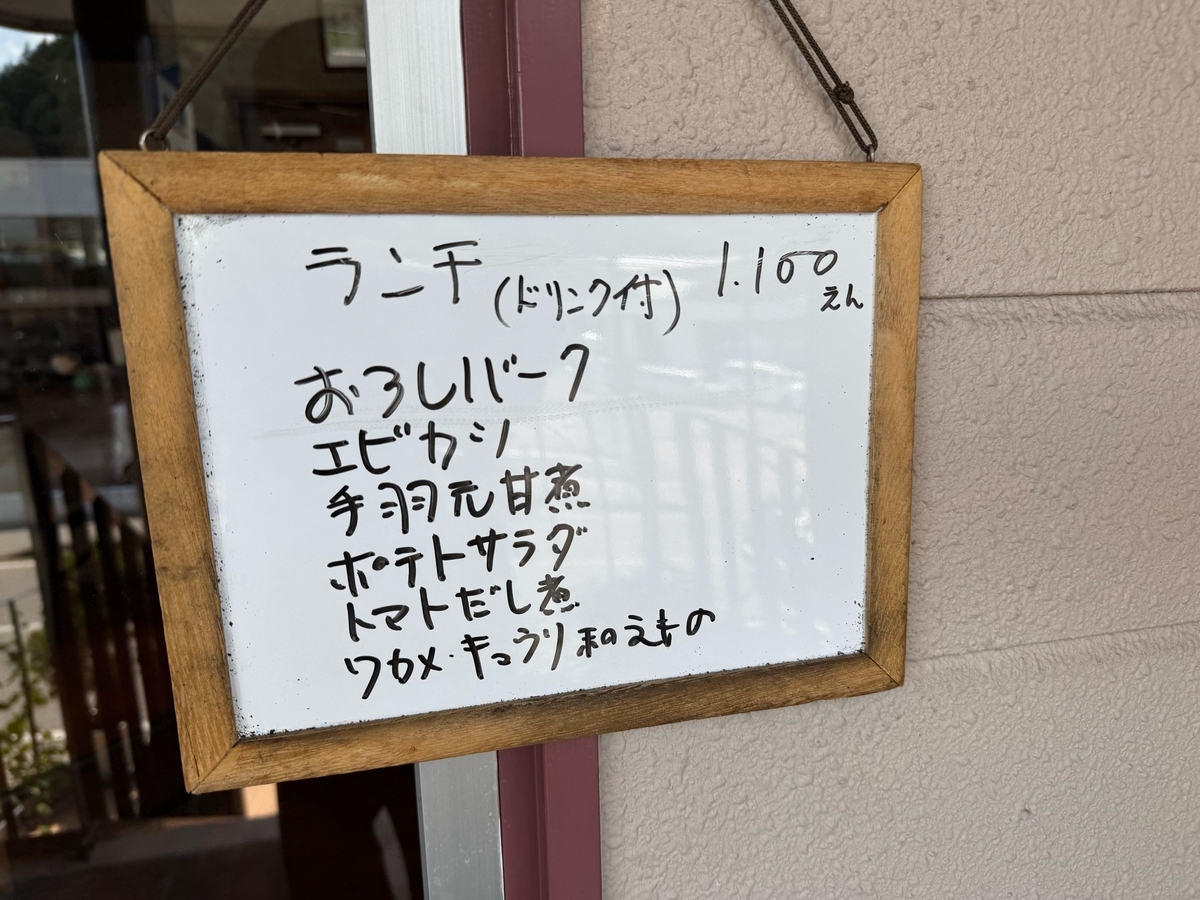 ランチ (ドリンク付) 1.100えん
おろしバーグ
エビカツ
手羽元甘煮
ポテトサラダ
トマトだし煮
ワカメ・キュウリ和えもの